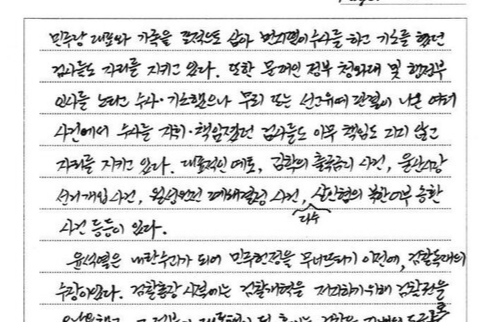 Page.
민주당 대표와 가족을 표적으로 삼아 먼지털이 수사를 하고 기소를 했던
검사들도 자리를 지키고 있다. 또한 문재인 정부 청와대 및 행정부
인사를 노리고 수사·기소했으나 무죄 또는 선고유예 판결이 나온 여러
사건에서 수사를 지휘·책임졌던 검사들도 아무 책임도 지지 않고
자리를 지키고 있다. 대표적인 예로, 김학의 출국금리 사건, 울산시장
선거개입 사건, 월성원전 폐쇄결정 사건, 살인범의 북한이부 송환
다수
사건 등등이 있다.
윤석열은 내란수괴가 되어 민주헌정을 무너뜨리기 이전에, 검찰독재의
수장이었다. 검찰총장 시절에는 검찰개혁을 저지하기 위해 검찰권을